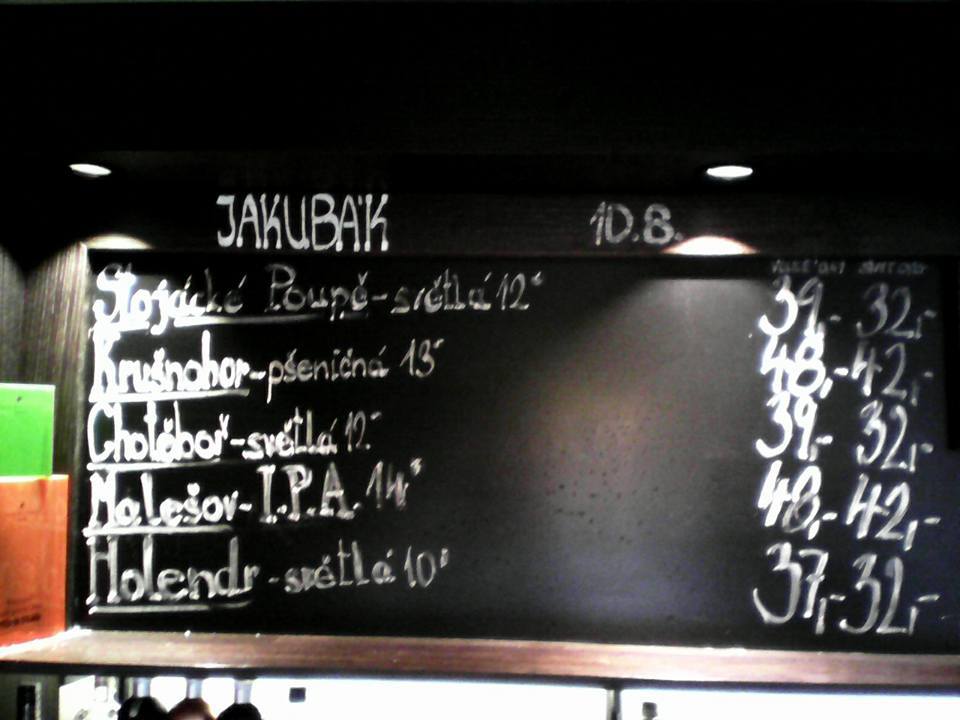 JAKUBÁK 10.8.
Stojácké Poupě - světlá 12° 39,- 32,-
Krušnohor - pšeničná 13° 48,- 42,-
Chotěboř - světlá 12° 39,- 32,-
Malešov - I.P.A. 14° 48,- 42,-
Holendr - světlá 10° 37,- 32,-